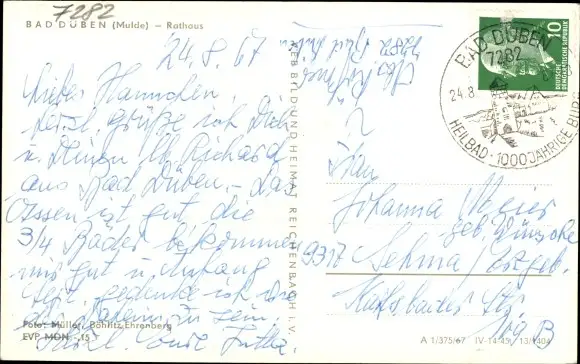 7282
BAD DÜBEN (Mulde) — Rathaus
24.8.67
Liebes Hannchen
herzl. Grüße
u. Deinen lb. Richard
aus Bad Düben. – Das
Essen ist gut die
3/4 Bäder bekommen
mir gut u. Anfang
Sept. gedenke ich wie
zu sein.
Foto: Müller, Böhlitz-Ehrenberg
EVP MDN -,15
VEB BILD UND HEIMAT REICHENBACH I. V.
7282 Bad Düben
BAD DÜBEN
7282
24.8.
HEILBAD · 1000 JÄHRIGE BURG
10
DEUTSCHE
DEMOKRATISCHE REPUBLIK
Frau
Johanna Meier
geb. Wünsche
9317 Sehma/Erzgeb.
Karlsbader Str.
A 1/375/67 IV-14-45 13/1404